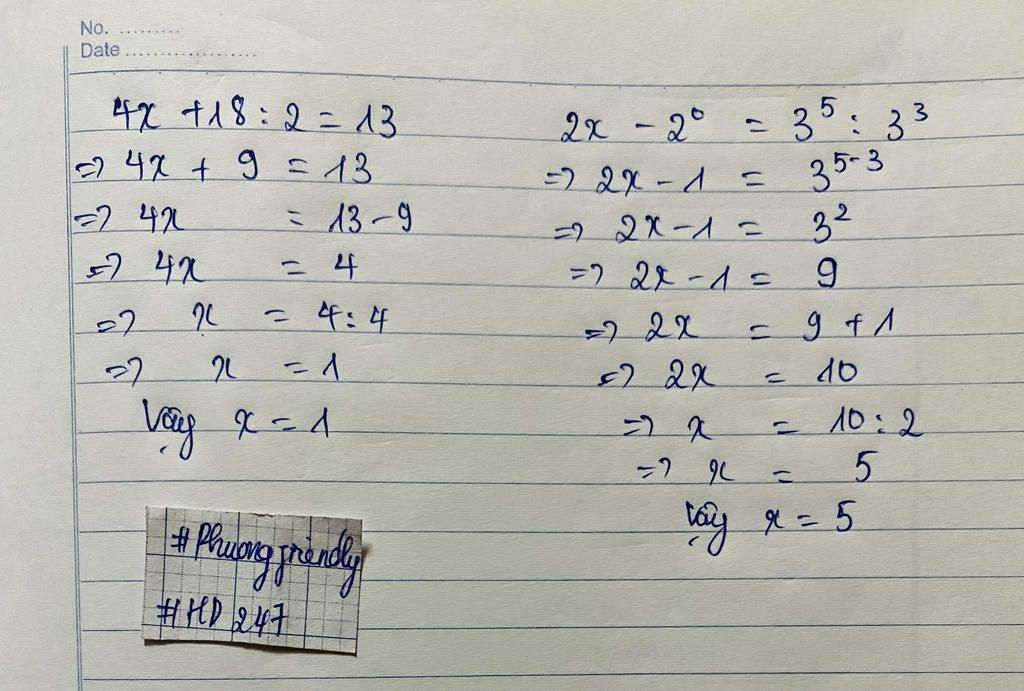 No. .........
Date ..................
4x + 18 : 2 = 13
=> 4x + 9 = 13
=> 4x = 13 - 9
=> 4x = 4
=> x = 4 : 4
=> x = 1
Vậy x = 1
2x - 2⁰ = 3⁵ : 3³
=> 2x - 1 = 3⁵⁻³
=> 2x - 1 = 3²
=> 2x - 1 = 9
=> 2x = 9 + 1
=> 2x = 10
=> x = 10 : 2
=> x = 5
Vậy x = 5
#Phuongfriendly
#HD 247